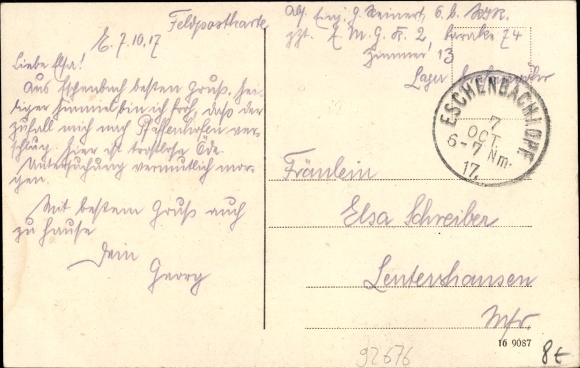 Feldpostkarte
E. 7.10.17
Liebe Elsa!
Aus Eschenbach besten Gruß. Hei-
liger Himmel bin ich froh, daß der
Zufall mich nach Pfaffenhofen ver-
schlug. Hier ist trostlose Öde.
Untersuchung vermutlich mor-
gen.
Mit bestem Gruß auch
zu Hause
Dein
Georg
Abs. G. Steinert, 6. b.
zzt. F. M. G. K. 2, Baracke 74
Zimmer 13
Lager
ESCHENBACH I. OPF.
7
OCT.
6-7 Nm.
17.
Fräulein
Elsa Schreiber
Leutershausen
Mfr.
16 9087
92676
8€